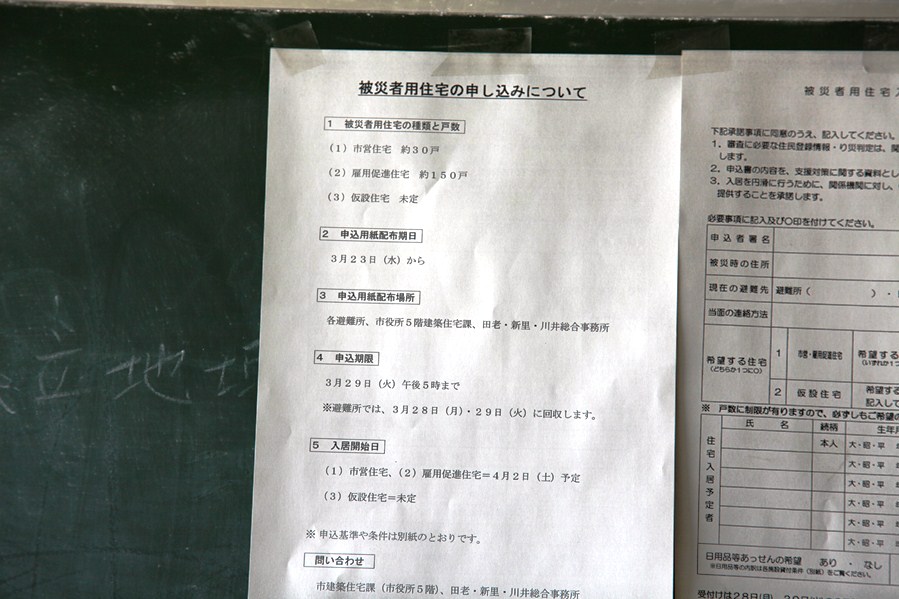 被災者用住宅の申し込みについて
1 被災者用住宅の種類と戸数
(1)市営住宅 約30戸
(2)雇用促進住宅 約150戸
(3)仮設住宅 未定
2 申込用紙配布期日
3月23日(水)から
3 申込用紙配布場所
各避難所、市役所5階建築住宅課、田老・新里・川井総合事務所
4 申込期限
3月29日(火)午後5時まで
※避難所では、3月28日(月)・29日(火)に回収します。
5 入居開始日
(1)市営住宅、(2)雇用促進住宅=4月2日(土)予定
(3)仮設住宅=未定
※ 申込基準や条件は別紙のとおりです。
問い合わせ
市建築住宅課(市役所5階)、田老・新里・川井総合事務所
被災者用住宅
下記承諾事項に同意のうえ、記入してください。
1.審査に必要な住民登録情報・り災判定は、
します。
2.申込書の内容を、支援対策に関する資料とし
3.入居を円滑に行うために、関係機関に対し、
提供することを承諾します。
必要事項に記入及び○印を付けてください。
申込者署名
被災時の住所
現在の避難先 避難所( )・
当面の連絡方法
希望する住宅
(どちらか1つに○)
1 市営・雇用促進住宅 希望する
(いずれか1つ
2 仮設住宅 希望する
記入して
※ 戸数に制限が有りますので、必ずしもご希望の
住宅入居予定者
氏 名 続柄 生年月
本人 大・昭・平
大・昭・平
大・昭・平
大・昭・平
大・昭・平
大・昭・平
日用品等あっせんの希望 あり ・ なし
※日用品等の内訳は各施設貸付条件(別紙)をご覧ください。
受付けは28日(月)
立地場